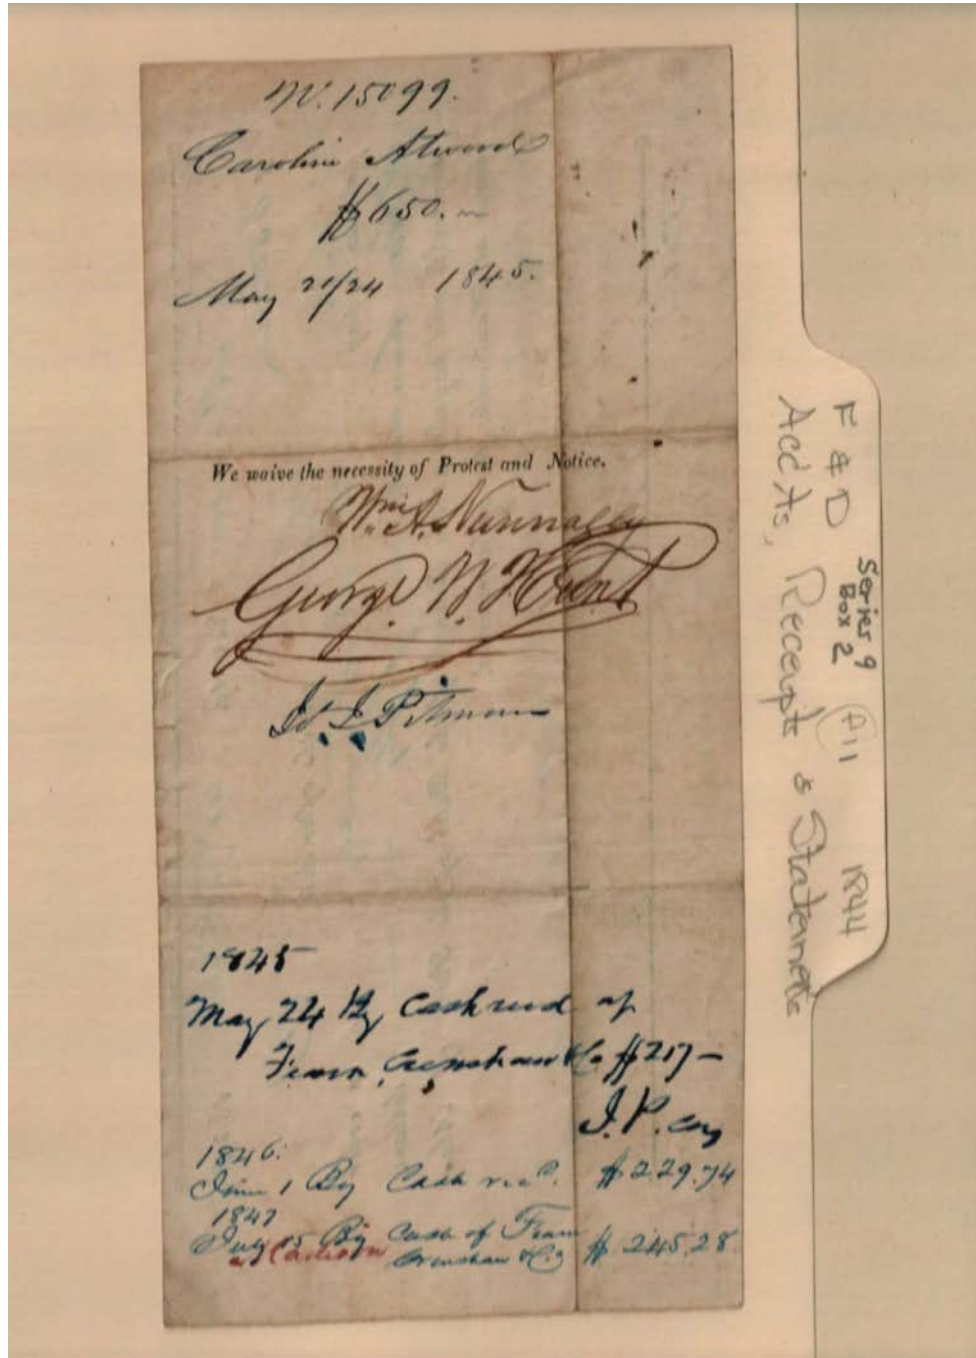 No. 15099.
Caroline Atwood
$650.
May 21/24 1845.
We waive the necessity of Protest and Notice.
Wm. A. Nunnally
George W. Hunt
J. Pitman
1845
May 24 By Cash recd of
Fearn, Crenshaw & Co $217 —
J. P.
1846.
June 1 By Cash recd. $229.74
1847
July 15 By Cash of Fearn
Crenshaw & Co $245.28
F & D
Accts, Receipts & Statements
Series 9
Box 2
A11
1844